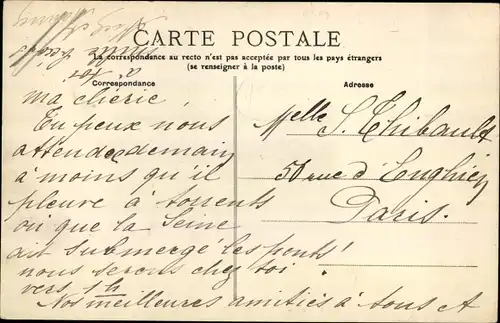 CARTE POSTALE
La correspondance au recto n'est pas acceptée par tous les pays étrangers
(se renseigner à la poste)
Correspondance
Adresse
ma chérie,
Tu peux nous
attendre demain
à moins qu'il
pleure à torrents
où que la Seine
ait submergé les ponts!
nous serons chez toi
vers 1h
Nos meilleures amitiés à tous
Melle S. Thibault
50 rue d'Enghien
Paris.